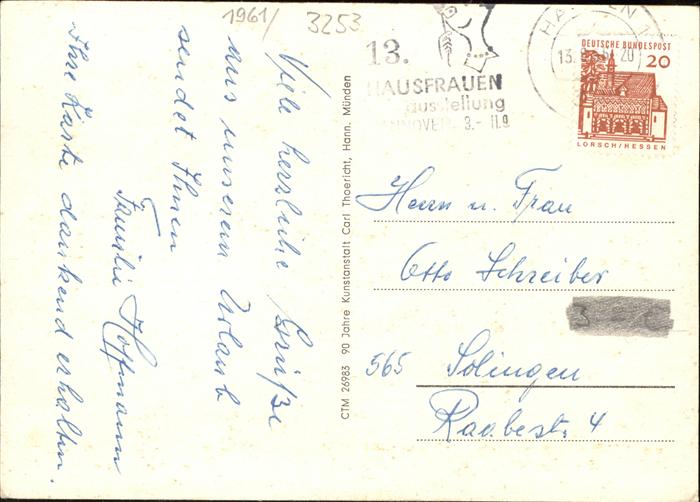 1961/ 3253
Viele herzliche Grüße
aus unserem Urlaub
sendet Ihnen
Familie Hoffmann
Ihre Karte dankend erhalten.
CTM 26983 90 Jahre Kunstanstalt Carl Thoericht, Hann. Münden
13.
HAUSFRAUEN
ausstellung
HANNOVER 3.- 11.9.
DEUTSCHE BUNDESPOST
20
LORSCH/HESSEN
Herrn u. Frau
Otto Schreiber
565 Solingen
Raabestr. 4